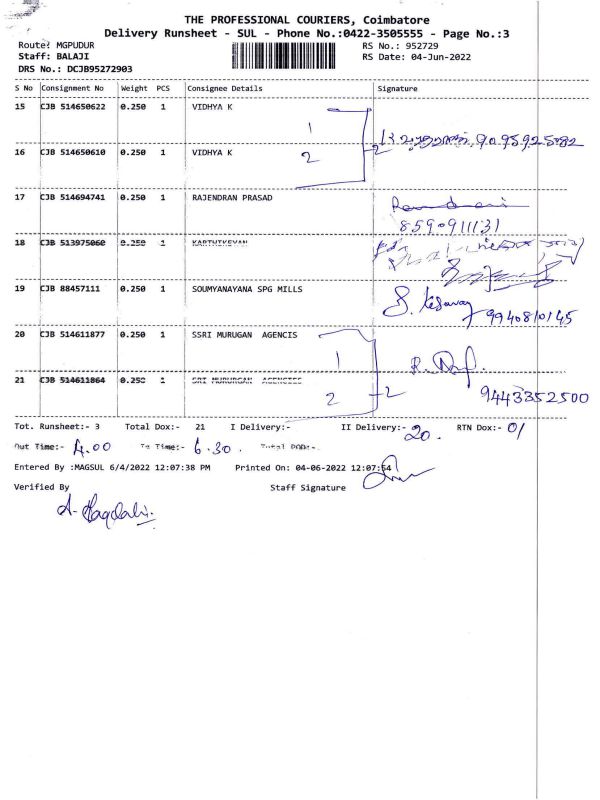 THE PROFESSIONAL COURIERS, Coimbatore
Delivery Runsheet - SUL - Phone No.:0422-3505555 - Page No.:3
Route: MGPUDUR RS No.: 952729
Staff: BALAJI RS Date: 04-Jun-2022
DRS No.: DCJB95272903
S No Consignment No Weight PCS Consignee Details Signature
15 CJB 514650622 0.250 1 VIDHYA K 1
9095925082
16 CJB 514650610 0.250 1 VIDHYA K 2 2
17 CJB 514694741 0.250 1 RAJENDRAN PRASAD
8590911131
18 CJB 513975060 0.250 1 KARTHIKEYAN
19 CJB 88457111 0.250 1 SOUMYANAYANA SPG MILLS
S. Kesavan 9940810145
20 CJB 514611877 0.250 1 SSRI MURUGAN AGENCIS 1
21 CJB 514611864 0.250 1 SRI MURURGAN AGENCIES 2 2 9443352500
Tot. Runsheet:- 3 Total Dox:- 21 I Delivery:- II Delivery:- 20. RTN Dox:- 01
Out Time:- 4.00 In Time:- 6.30 Total POD:-
Entered By :MAGSUL 6/4/2022 12:07:38 PM Printed On: 04-06-2022 12:07:54
Verified By Staff Signature